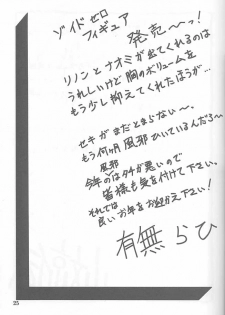 ゾイドゼロ
フィギュア
発売〜っ!
リノンとナオミが出てくれるのは
うれしいけど胸のボリュームを
もう少し抑えてくれたほうが…
セキがまだとまらない〜。
もう何ヶ月風邪ひいているんだろ〜
今年の風邪はタチが悪いので
皆様も気を付けて下さい。
それでは
良いお年をお迎え下さい!
有無らひ
25